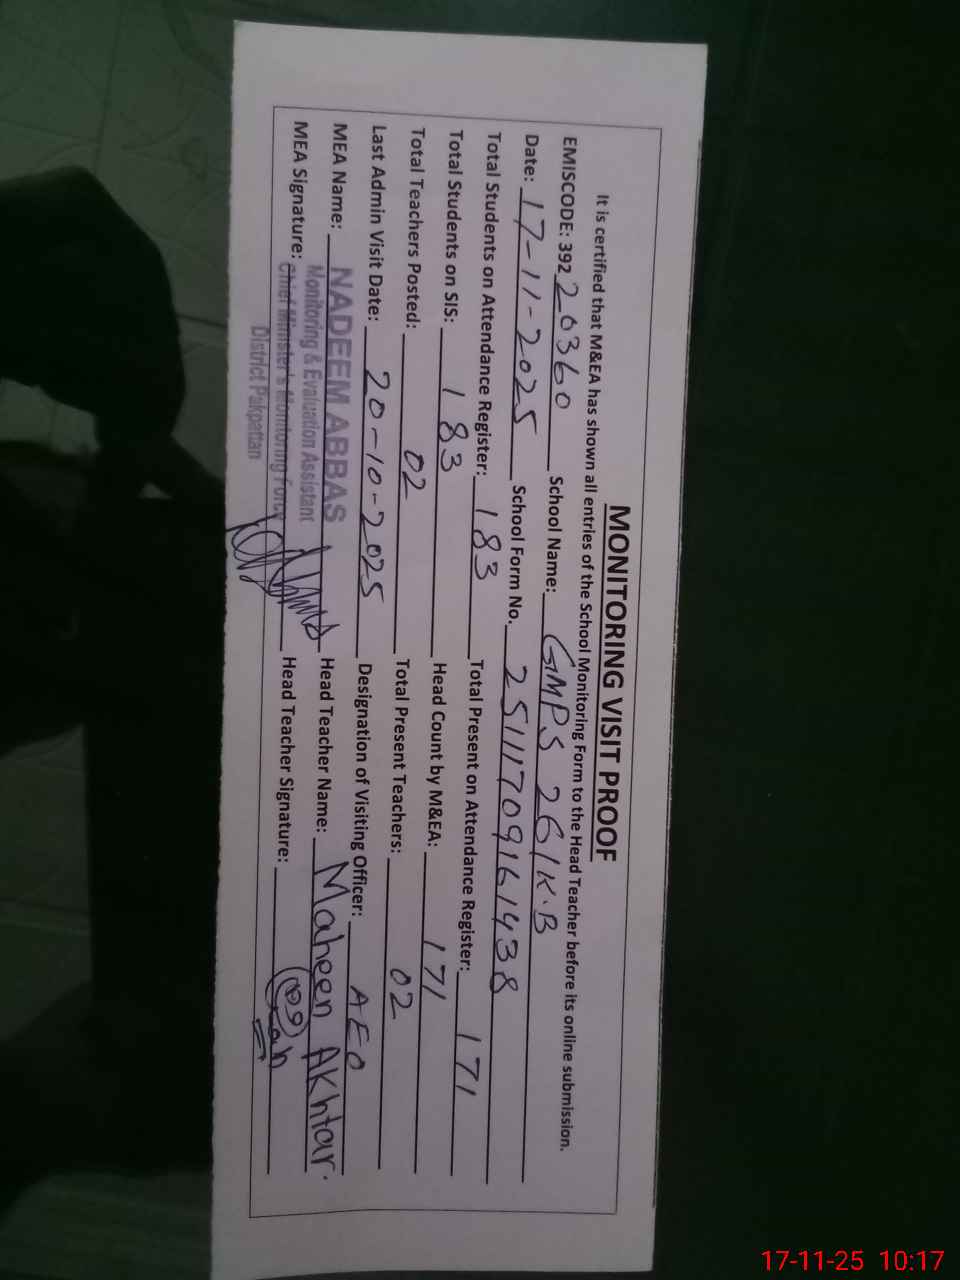 MONITORING VISIT PROOF
It is certified that M&EA has shown all entries of the School Monitoring Form to the Head Teacher before its online submission.
EMISCODE: 392 20360 School Name: GMPS 26/K.B
Date: 17-11-2025 School Form No. 25111709161438
Total Students on Attendance Register: 183 Total Present on Attendance Register: 171
Total Students on SIS: 183 Head Count by M&EA: 171
Total Teachers Posted: 02 Total Present Teachers: 02
Last Admin Visit Date: 20-10-2025 Designation of Visiting Officer: AEO
MEA Name: NADEEM ABBAS Head Teacher Name: Maheen Akhtar.
Monitoring & Evaluation Assistant
MEA Signature: Chief Minister's Monitoring Force Head Teacher Signature:
District Pakpattan
17-11-25 10:17